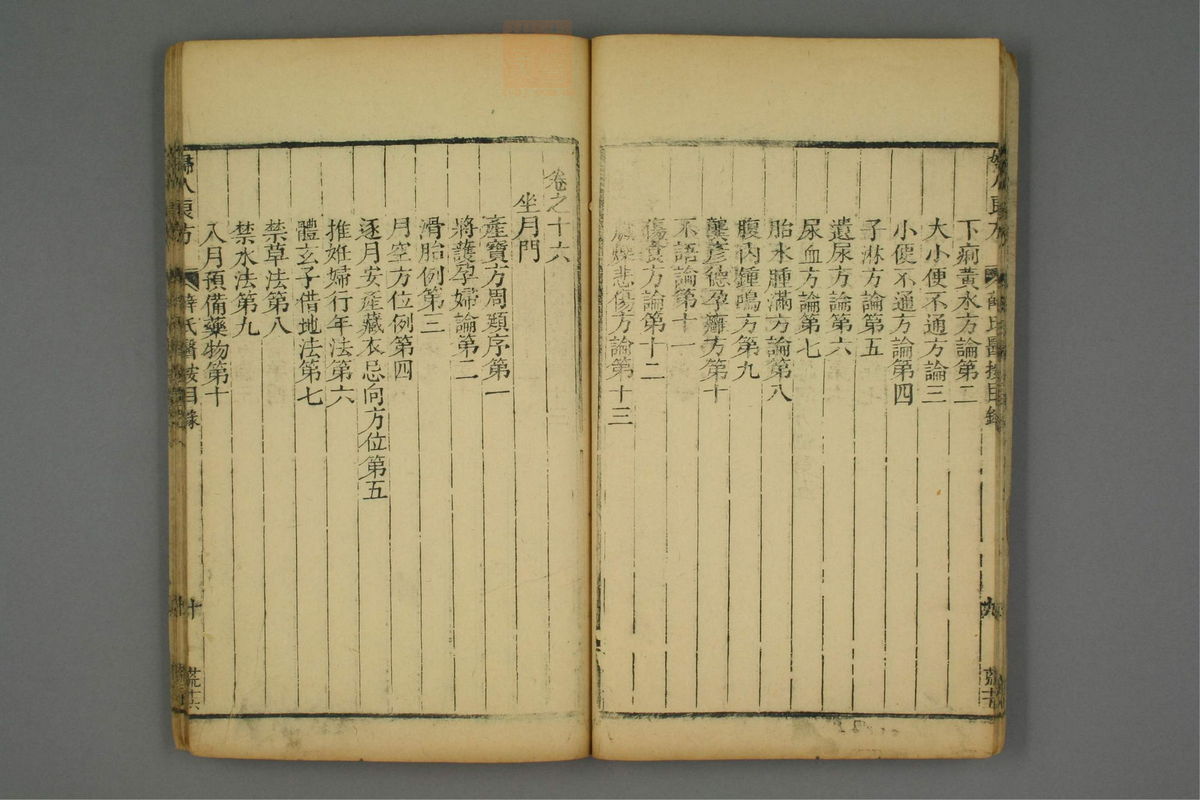 下痢黃水方論第二
大小便不通方論三
小便不通方論第四
子淋方論第五
遺尿方論第六
尿血方論第七
胎水腫滿方論第八
腹內鐘鳴方第九
孕癰方第十
不語論第十一
傷食方論第十二
臟燥悲傷方論第十三
九
卷之十六
坐月門
產寶方周頲序第一
將護孕婦論第二
滑胎例第三
月空方位例第四
逐月安產藏衣忌向方位第五
推姙婦行年法第六
體玄子借地法第七
禁草法第八
禁水法第九
入月預備藥物第十
婦人良方
薛氏醫按目錄
十